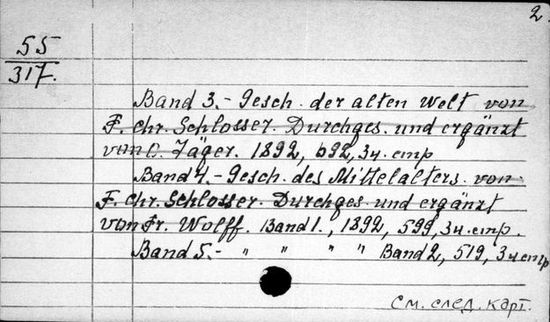 2.
55
317.
Band 3.- Gesch. der alten Welt von
F. Chr. Schlosser. Durchges. und ergänzt
von O. Jäger. 1892, 692, 34. стр
Band 4.- Gesch. des Mittelalters von
F. Chr. Schlosser. Durchges. und ergänzt
von Fr. Wolff. Band 1., 1892, 599, 34. стр.
Band 5.- " " " " Band 2, 519, 34 стр
См. след. карт.